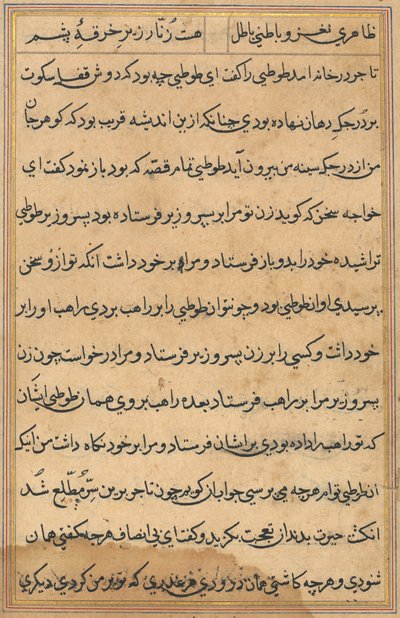 ظاهری نغز و باطنی باطل هست زنّار زیر خرقهٔ پشم
تاجر در خانه امد طوطی را گفت ای طوطی چه بود که دوش قفل سکوت
بر درجک دهان نهاده بودی چنانکه از ین اندیشه قریب بود که کوهر جان
من از درجک سینه من بیرون آید طوطی تمام قصّه که بود باز نمود کفت ای
خواجه سخن که کوید زن تو مرا بر پسر وزیر فرستاده بود پسر وزیر طوطی
تراشیده خود را بدو باز فرستاد و مرا بر خود داشت آنکه تو از و سخن
پرسیدی اوان طوطی بود و چون توان طوطی را بر راهب بردی راهب او را بر
خود داشت و کسی را بر زن پسر وزیر فرستاد و مرا درخواست چون زن
پسر وزیر مرا بر راهب فرستاد بعده راهب بروی همان طوطی ایشان
که تو راهب را داده بودی بر ایشان فرستاد و مرا بر خود نکاه داشت من اینک
ان طوطی توام هرچه می پرسی جواب باز کویم چون تاجر برین سرّ مطّلع شد
انکشت حیرت بدندان تعجّب بکزید و کفت ای بی انصاف هرچه کفتی همان
شنودی و هرچه کاشتی همان درودی هر غدری که تو بر من کردی دیکری